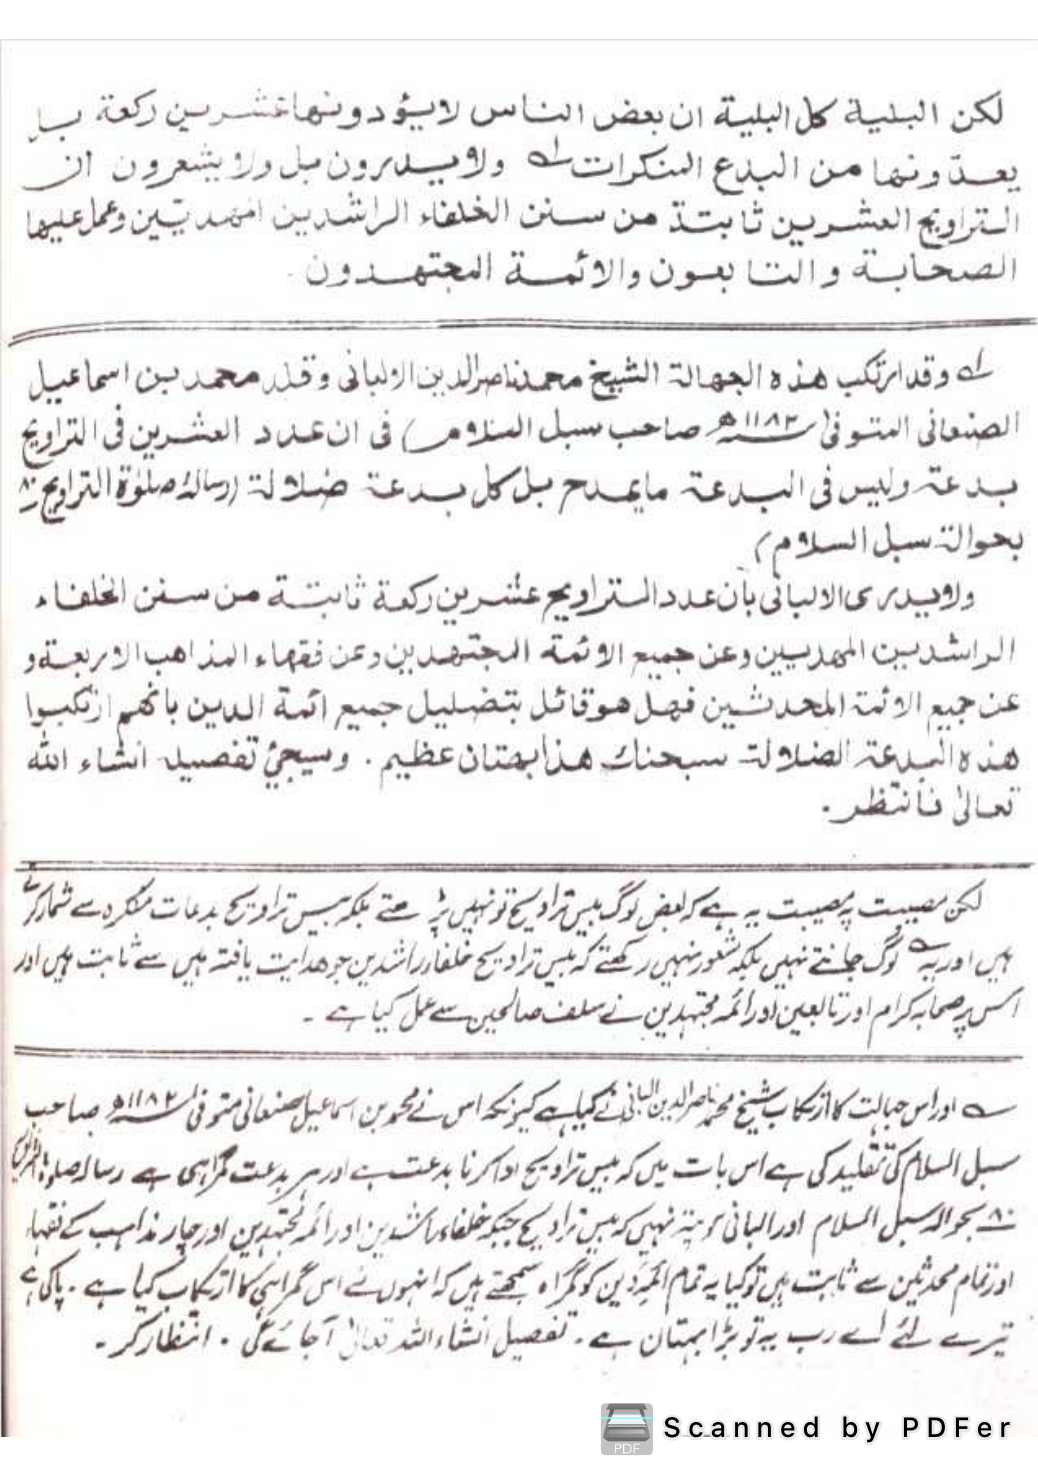 لكن البلية كل البلية ان بعض الناس لايؤدونها عشرين ركعة بل
يعدّونها من البدع المنكرات لہ ولا يدرون بل ولا يشعرون ان
التراويح العشرين ثابتة من سنن الخلفاء الراشدين المهديّين وعمل عليها
الصحابة والتابعون والائمة المجتهدون.
لہ وقد ارتكب هذه الجهالة الشيخ محمد ناصر الدين الالبانى وقلد محمد بن اسماعيل
الصنعانى المتوفى ۱۱۸۲ھ صاحب سبل السلام) فى ان عدد العشرين فى التراويح
بدعة وليس فى البدعة مايمدح بل كل بدعة ضلالة (رسالۂ صلوٰة التراويح ۸۰
بحوالة سبل السلام)
ولا يدرى الالبانى بأن عدد التراويح عشرين ركعة ثابتة من سنن الخلفاء
الراشدين المهديين وعن جميع الائمة المجتهدين وعن فقهاء المذاهب الاربعة و
عن جميع الائمة المحدثين فهل هو قائل بتضليل جميع ائمة الدين بانهم ارتكبوا
هذه البدعة الضلالة سبحنك هذا بهتان عظيم. وسيجئ تفصيله انشاء الله
تعالىٰ فانتظر.
لکن مصیبت پر مصیبت یہ ہے کہ بعض لوگ بیس تراویح تو نہیں پڑھتے بلکہ بیس تراویح بدعات منکرہ سے شمار کرتے
ہیں اور یہ لہ لوگ جانتے نہیں بلکہ شعور نہیں رکھتے کہ بیس تراویح خلفاء راشدین جو ھدایت یافتہ ہیں سے ثابت ہیں اور
اس پر صحابہ کرام اور تابعین اور ائمہ مجتہدین نے سلف صالحین سے عمل کیا ہے ۔
لہ اور اس جہالت کا ارتکاب شیخ محمد ناصر الدین البانی نے کیا ہے کیونکہ اس نے محمد بن اسماعیل صنعانی متوفی ۱۱۸۲ھ صاحب
سبل السلام کی تقلید کی ہے اس بات میں کہ بیس تراویح ادا کرنا بدعت ہے اور ہر بدعت گمراہی ہے رسالہ صلوٰة التراویح
۸۰ بحوالہ سبل السلام اور البانی کو پتہ نہیں کہ بیس تراویح جبکہ خلفاء راشدین اور ائمہ مجتہدین اور چار مذاہب کے فقہاء
اور تمام محدثین سے ثابت ہیں تو کیا یہ تمام ائمہ دین کو گمراہ سمجھتے ہیں کہ انہوں نے اس گمراہی کا ارتکاب کیا ہے ۔ پاکی ہے
تیرے لئے اے رب یہ تو بڑا بہتان ہے ۔ تفصیل انشاء اللہ تعالیٰ آجائے گی ۔ انتظار کر ۔
PDF
Scanned by PDFer